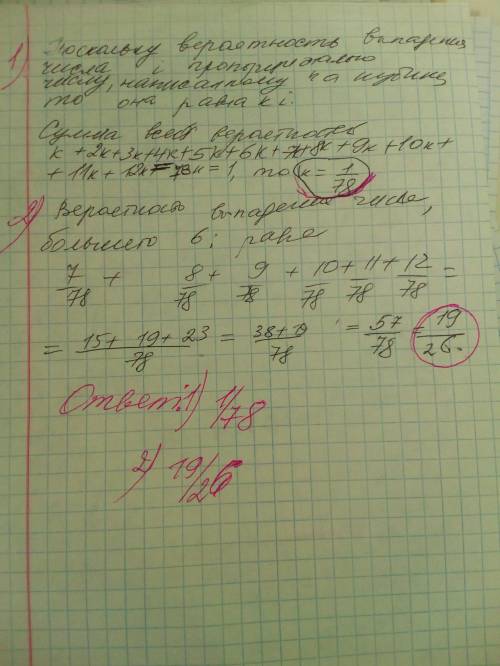 1) Поскольку вероятность выпадения
числа i пропорционально
числу, написанному на кубике
то она равна k i.
Сумма всех вероятность
k + 2k + 3k + 4k + 5k + 6k + 7k + 8k + 9k + 10k +
+ 11k + 12k = 78k = 1, то k = 1/78
2) Вероятность выпадения числа,
большего 6; равна
7/78 + 8/78 + 9/78 + 10/78 + 11/78 + 12/78 =
= (15 + 19 + 23)/78 = (38 + 19)/78 = 57/78 = 19/26.
Ответ: 1) 1/78
2) 19/26